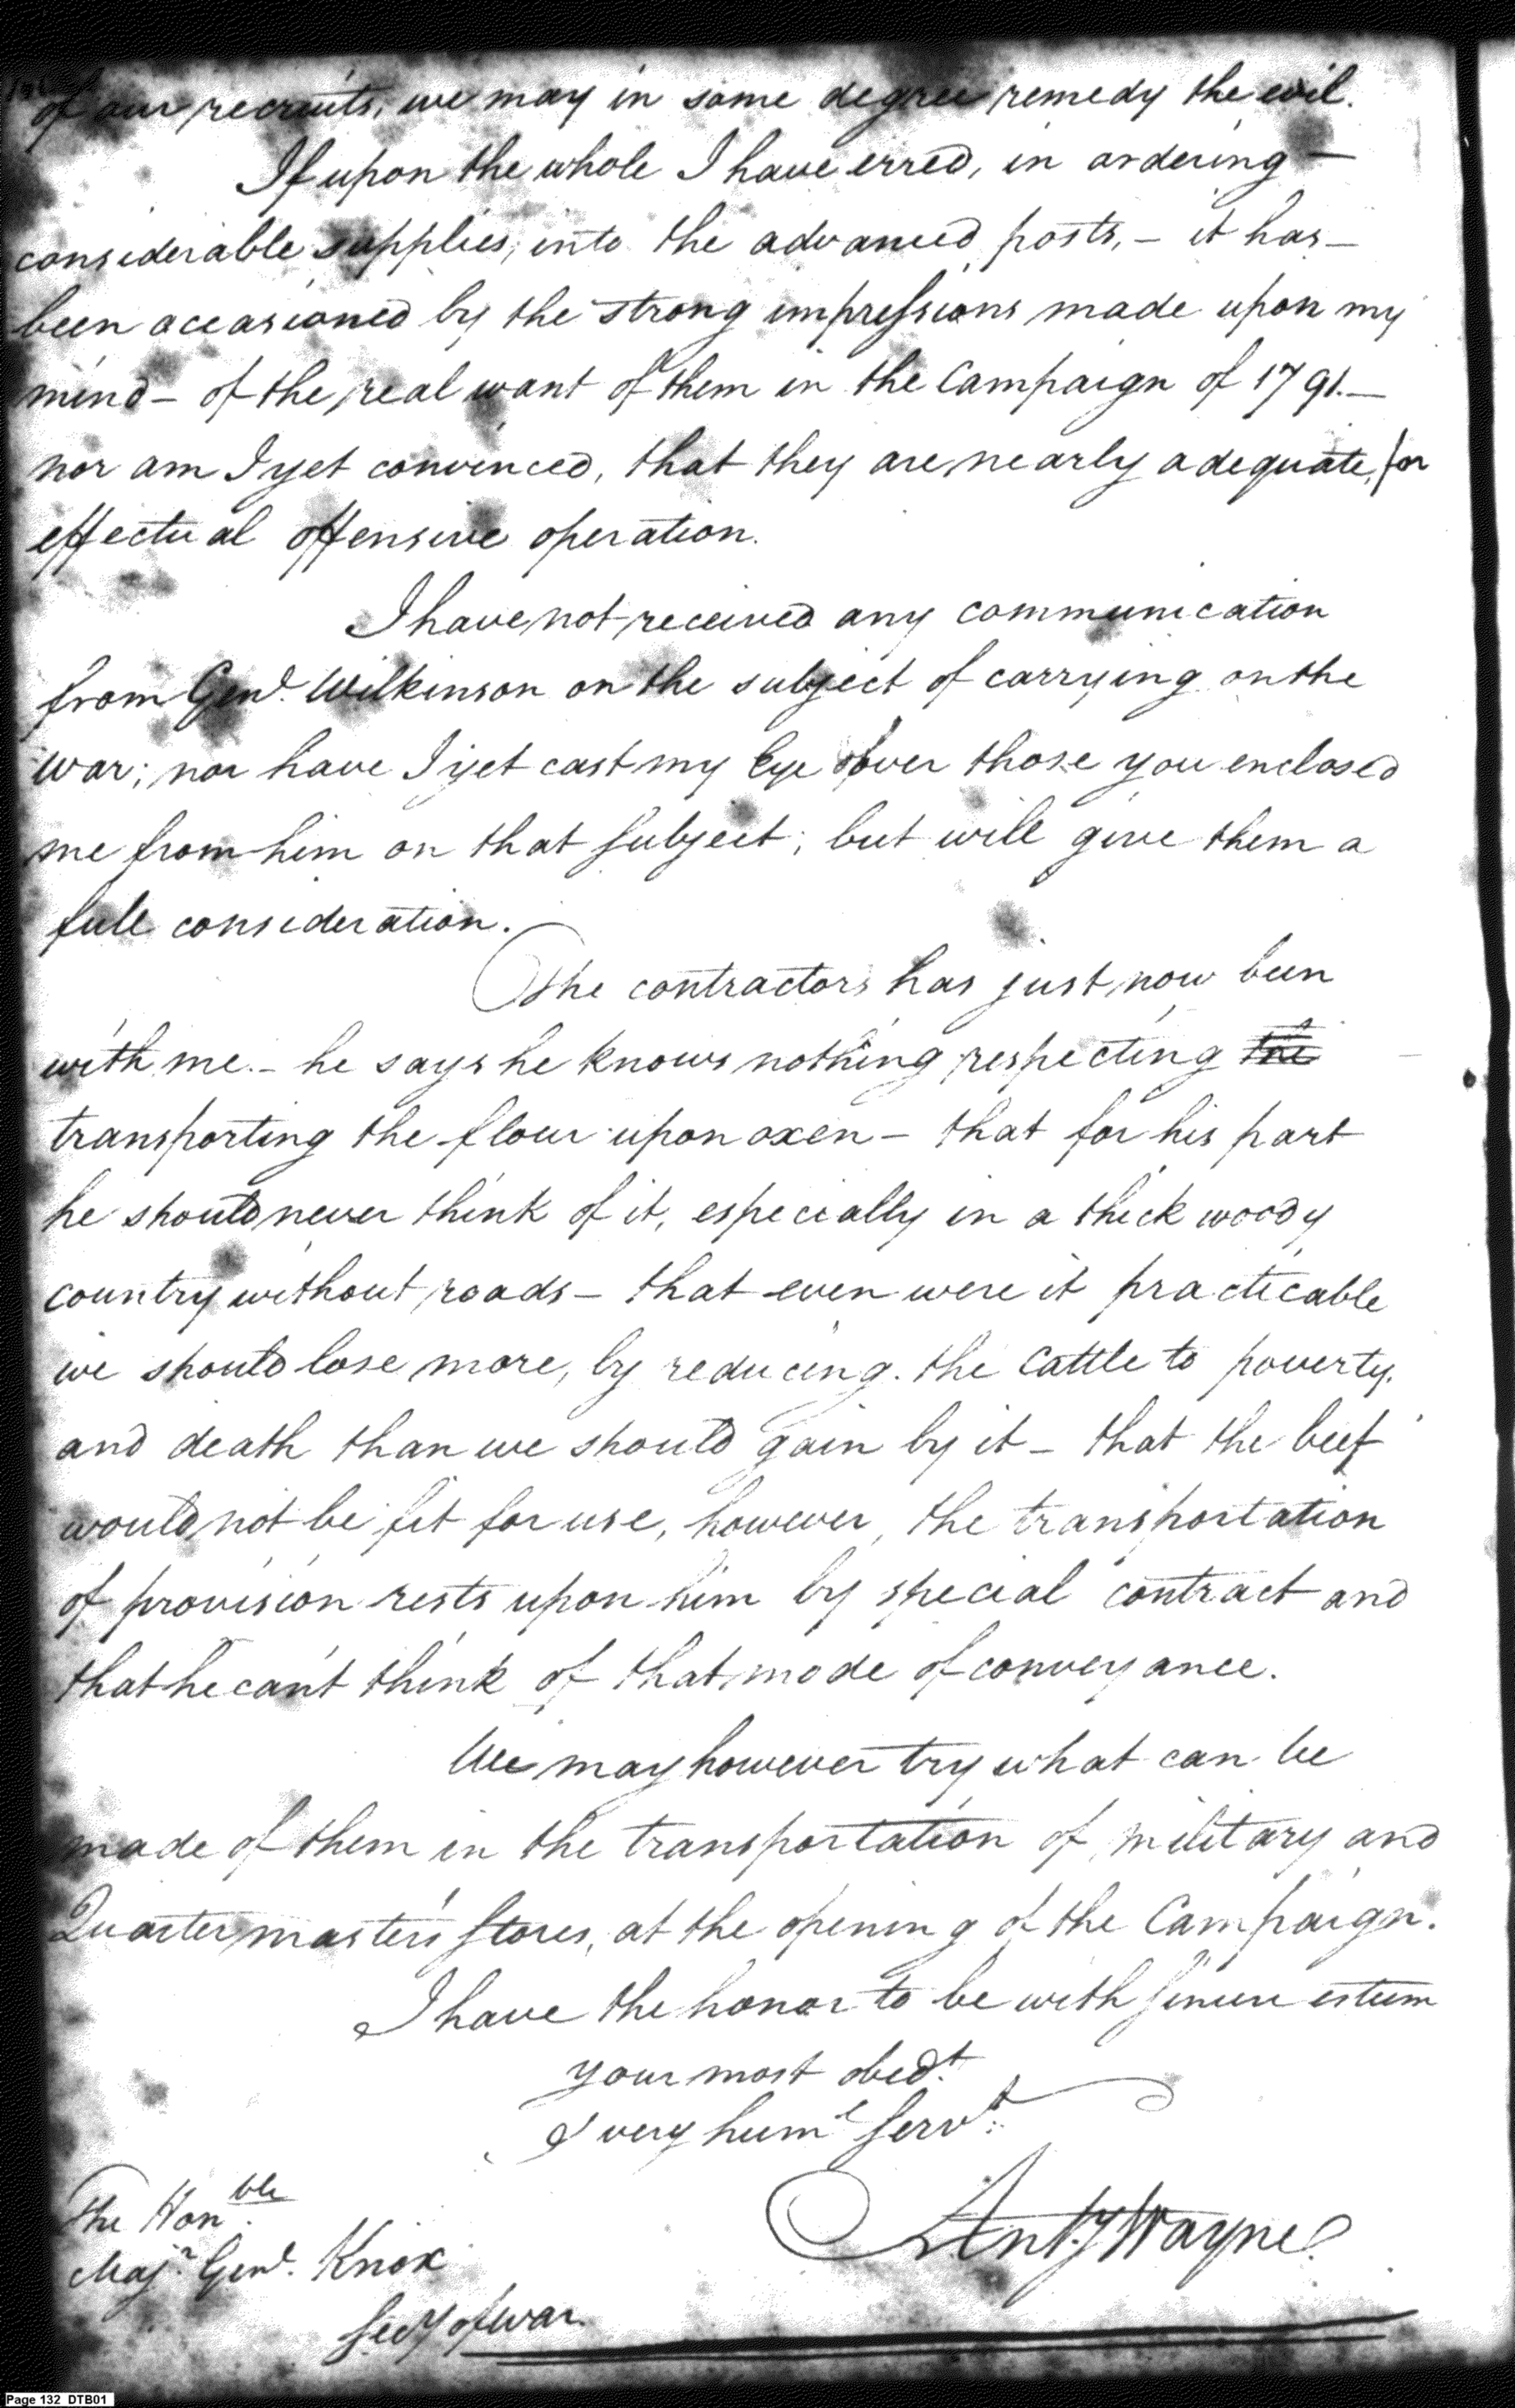 of our recruits, we may in some degree remedy the evil.
If upon the whole I have erred, in ordering —
considerable supplies, into the advanced posts, — it has —
been occasioned by the strong impressions made upon my
mind — of the real want of them in the Campaign of 1791. —
nor am I yet convinced, that they are nearly adequate, for
effectual offensive operation.
I have not received any communication
from Genl. Wilkinson on the subject of carrying on the
war; nor have I yet cast my Eye over those you enclosed
me from him on that subject; but will give them a
full consideration.
The contractors has just now been
with me. — he says he knows nothing respecting the
transporting the flour upon oxen — that for his part
he should never think of it, especially in a thick woody
country without roads — that even were it practicable
we should lose more, by reducing the Cattle to poverty.
and death than we should gain by it — that the beef
would not be fit for use, however, the transportation
of provision rests upon him by special contract and
that he can't think of that mode of conveyance.
We may however try what can be
made of them in the transportation of military and
Quarter master's stores, at the opening of the Campaign.
I have the honor to be with sincere esteem
your most obedt.
& very huml Servt.
Anty Wayne
The Honble.
Majr. Genl. Knox
Secy of war.
Page 132 DTB01